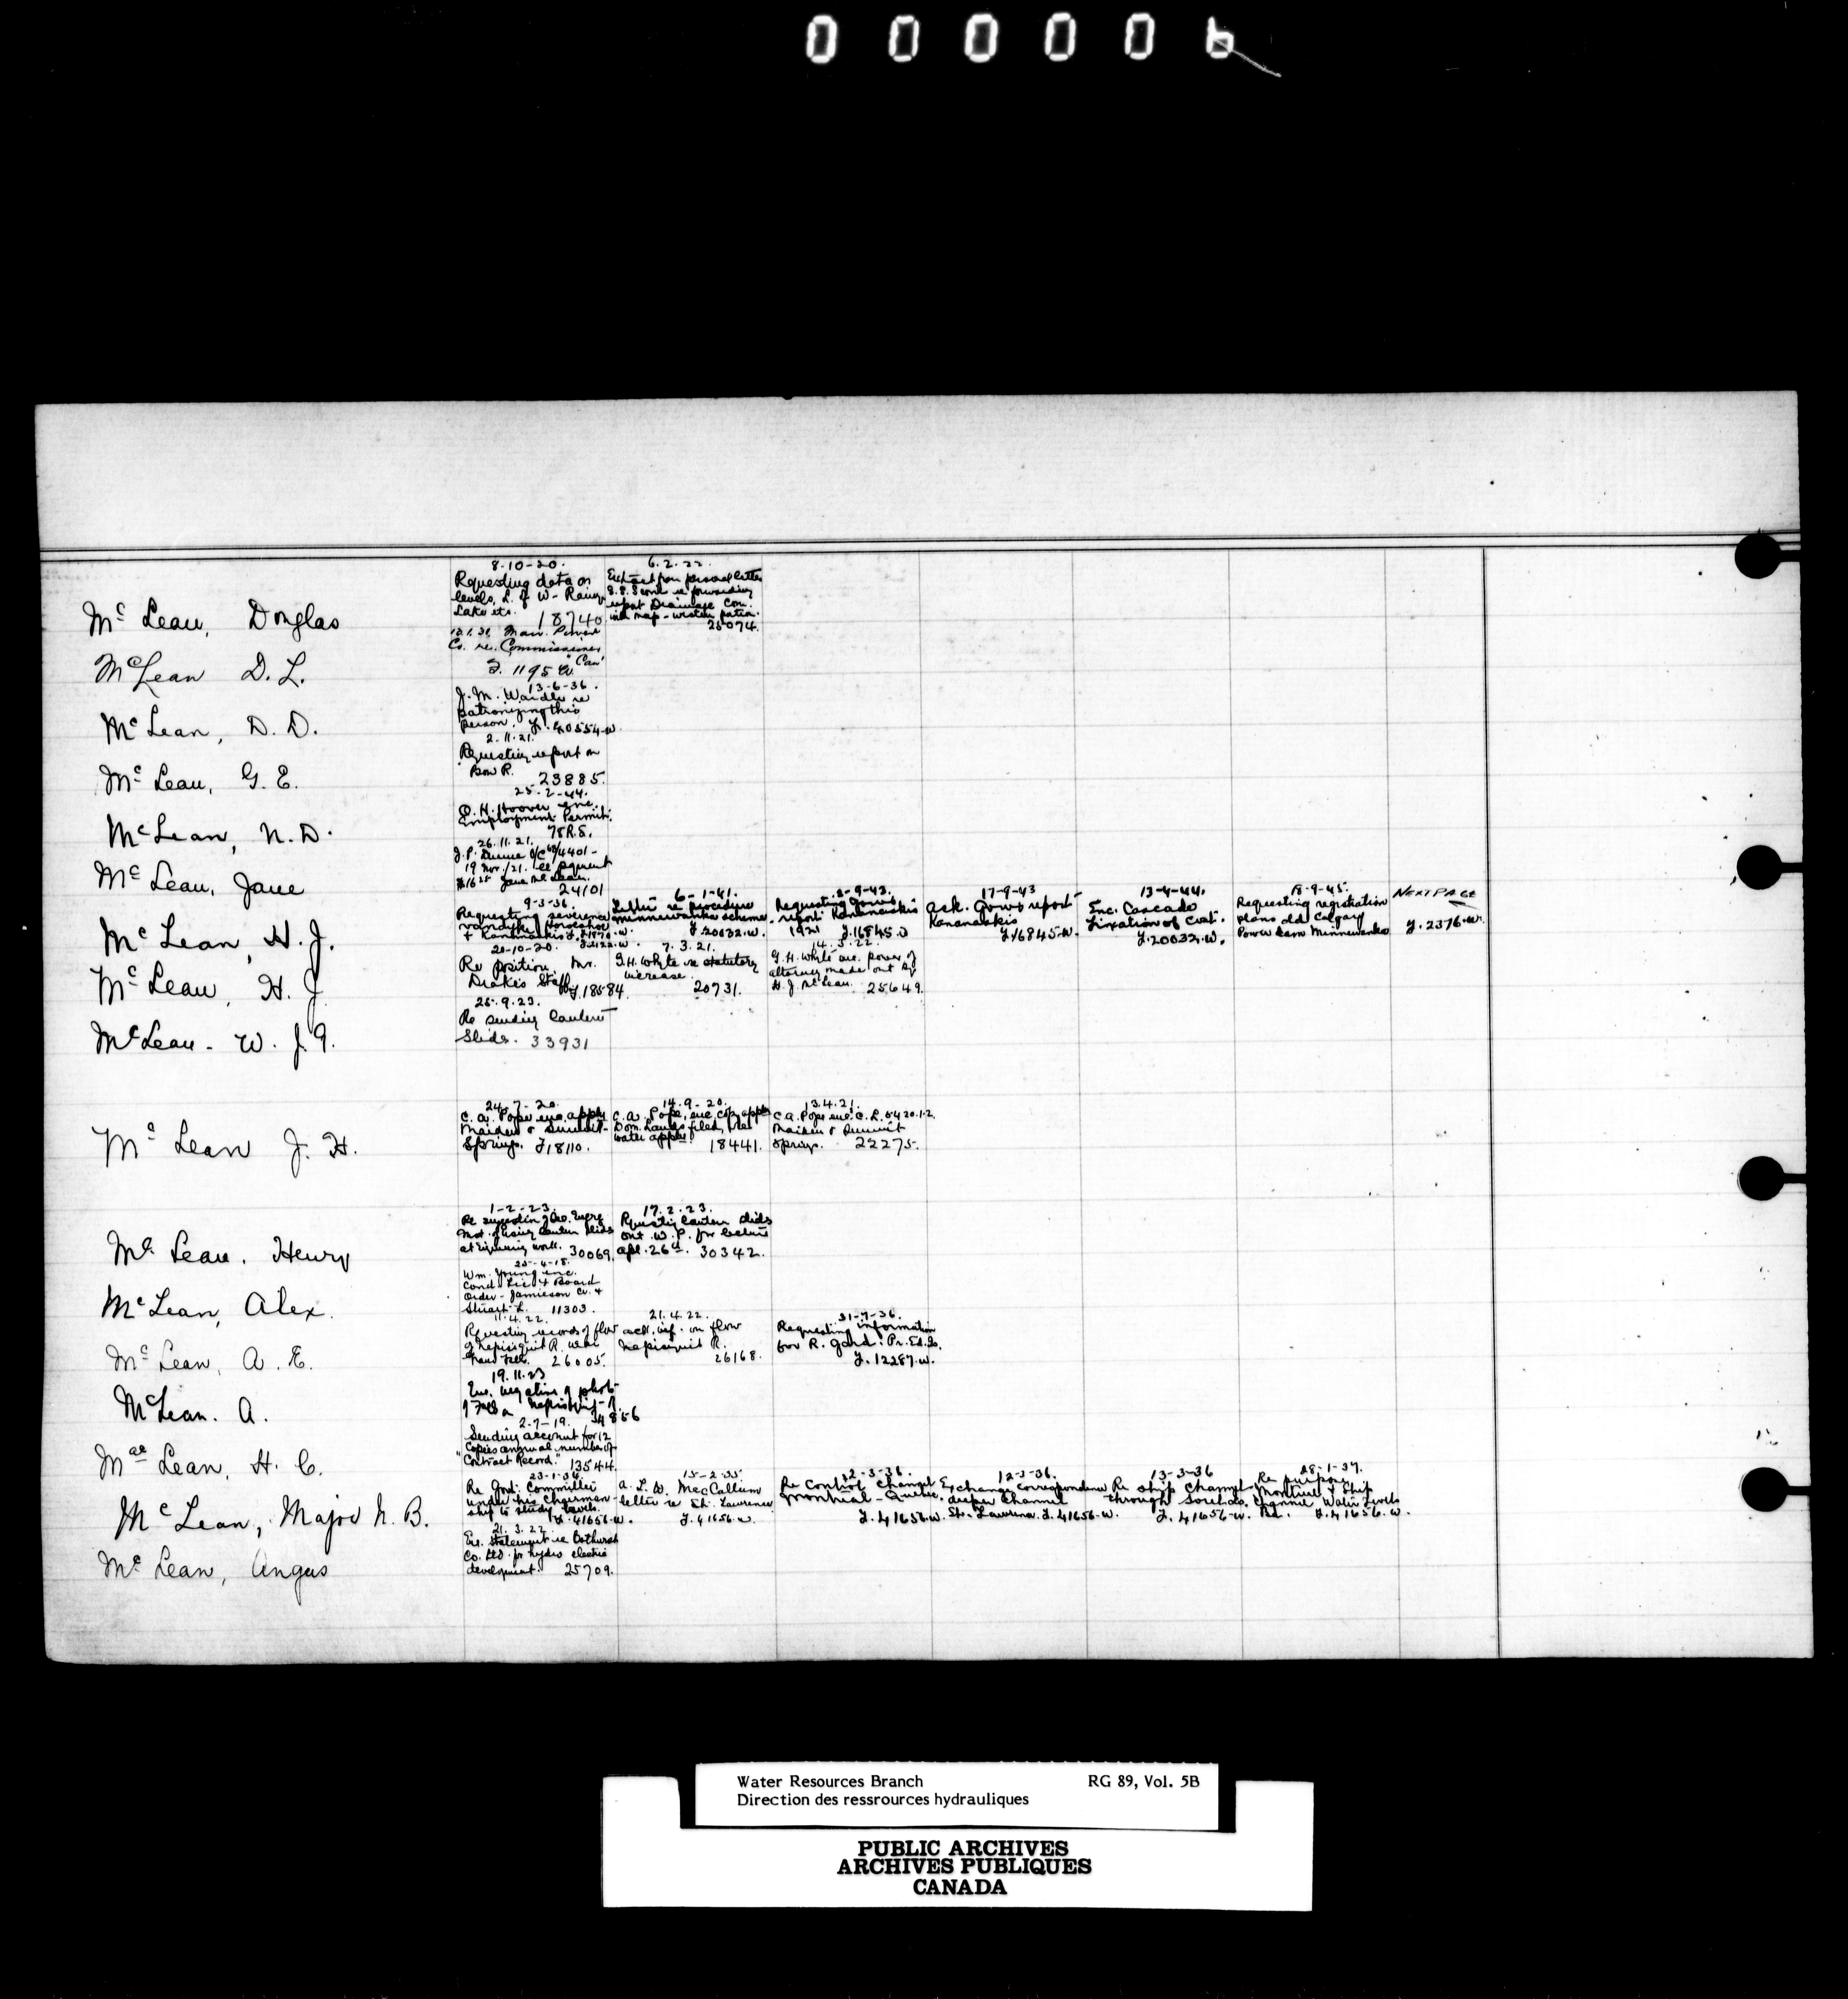 000006
8-10-20.
Requesting data on
levels, L. of W - Rainy
Lake etc.
18740
6.2.22.
Extract from personal letter
report Drainage Com.
with map - western
25074.
Mc Lean, Douglas
Man. Power
Co. re. Commissioner
1195 W
McLean D. L.
13-6-36.
J. M. Wardle re
patronizing this
person. 40554-W
McLean, D. D.
2.11.21.
Requesting report on
Bow R.
23885.
Mc Lean, G. E.
25-2-44.
O. H. Hoover enc.
Employment Permit.
78 R.S.
McLean, N. D.
26.11.21.
19 Nov./21. re payment
Jane McLean.
24101
Mc Lean, Jane
9-3-36.
Requesting severence
Horseshoe
6-1-41.
Letter re procedure
Minnewanka scheme.
J.20032.W.
2-9-43.
Requesting Govt
report Kananaskis
J.16845.W
17-9-43
Ask. Govt report
Kananaskis
J.16845-W.
13-4-44.
Enc. Cascade
Fixation of Cost.
J.20032.W.
18-9-45.
Requesting registration
plans add Calgary
Power Dam Minnewanka
NEXT PAGE
J.2376-W.
Mc Lean, H. J.
20-10-20.
Re position. Mr.
Drake's Staff
J.18584.
7.3.21.
G.H. Whyte re statutory
increase.
20731.
14.3.22.
G.H. Whyte enc. power of
attorney made out by
H. J. McLean. 25649.
Mc Lean, H. J
25.9.23.
Re sending lantern
Slides. 33931
McLean - W. J.
24.7-20.
C. A. Pope enc. apply
Maiden & Summit
Springs. J18110.
14.9-20.
C. A. Pope, enc. copy apply
Dom. Lands filed,
water apply.
18441.
13.4.21.
C. A. Pope enc.
Maiden & Summit
Springs. 22275.
Mc Lean J. H.
1-2-23.
of using lantern slides
at Engineering work. 30069.
17.2.23.
Requesting lantern slides
Ont. W. P. for lecture
Apl. 26th. 30342.
Mc Lean. Henry
25-4-18.
Wm. Young enc.
Cond. Lic. & Board
Order - Jamieson Cr. &
Stuart L. 11303.
McLean, Alex.
11.4.22.
Requesting records of flow
of Nepisiguit R. near
Grand Falls. 26005.
21.4.22.
Ack. inf. on flow
Nepisiguit R.
26168.
31-7-36.
Requesting information
for R. Gard: Pr. Ed. Is.
J.12287.W.
Mc Lean, A. E.
19.11.23
Enc. negative of photo
34856
McLean. A.
2-7-19.
Sending account for 12
copies annual number of
"Contract Record." 13544.
Mac Lean, H. C.
Re Govt. Committee
under his chairman-
ship to study levels.
J.41656-W.
15-2-35.
A. L. W. MacCallum
letter re St. Lawrence
J.41656.W.
2-3-36.
Re Control Channel
Montreal - Quebec.
J.41656.W.
12-3-36.
Exchange correspondence
deeper channel
St. Lawrence. J.41656-W.
13-3-36
Re ship channel
through Sorel
J.41656-W.
28-1-37.
Re purpose
Montreal & Ship
Channel Water Levels
J.41656.W.
Mc Lean, Major N. B.
21.3.22
Enc. statement re Bathurst
Co. Ltd. for hydro electric
development. 25709.
Mc Lean, Angus
Water Resources Branch RG 89, Vol. 5B
Direction des ressrources hydrauliques
PUBLIC ARCHIVES
ARCHIVES PUBLIQUES
CANADA